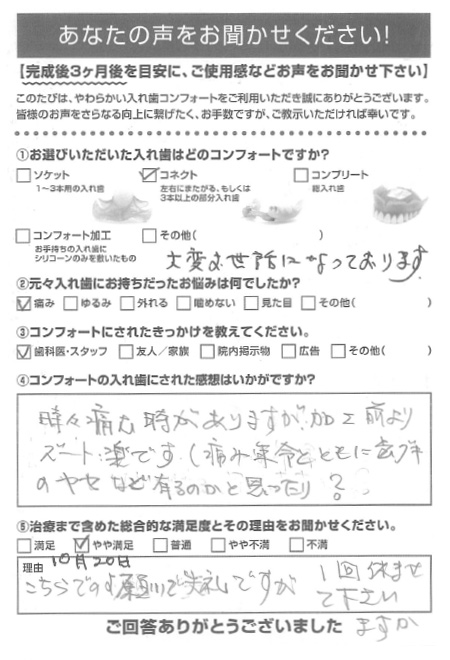 あなたの声をお聞かせください!
【完成後3ヶ月後を目安に、ご使用感などお声をお聞かせ下さい】
このたびは、やわらかい入れ歯コンフォートをご利用いただき誠にありがとうございます。
皆様のお声をさらなる向上に繋げたく、お手数ですが、ご教示いただければ幸いです。
①お選びいただいた入れ歯はどのコンフォートですか?
ソケット 1〜3本用の入れ歯
コネクト 左右にまたがる、もしくは3本以上の部分入れ歯
コンプリート 総入れ歯
コンフォート加工 お手持ちの入れ歯にシリコーンのみを敷いたもの
その他( )
大変お世話になっております
②元々入れ歯にお持ちだったお悩みは何でしたか?
痛み ゆるみ 外れる 噛めない 見た目 その他( )
③コンフォートにされたきっかけを教えてください。
歯科医・スタッフ 友人/家族 院内掲示物 広告 その他( )
④コンフォートの入れ歯にされた感想はいかがですか?
時々痛む時がありますが、加工前より
ズート楽です(痛み年令とともに歯グキ
のヤセなど有るのかと思ったり?
⑤治療まで含めた総合的な満足度とその理由をお聞かせください。
満足 やや満足 普通 やや不満 不満
理由 10月20日
こちらでのお願いで失礼ですが 1回休ませ
て下さい
ご回答ありがとうございました ますか